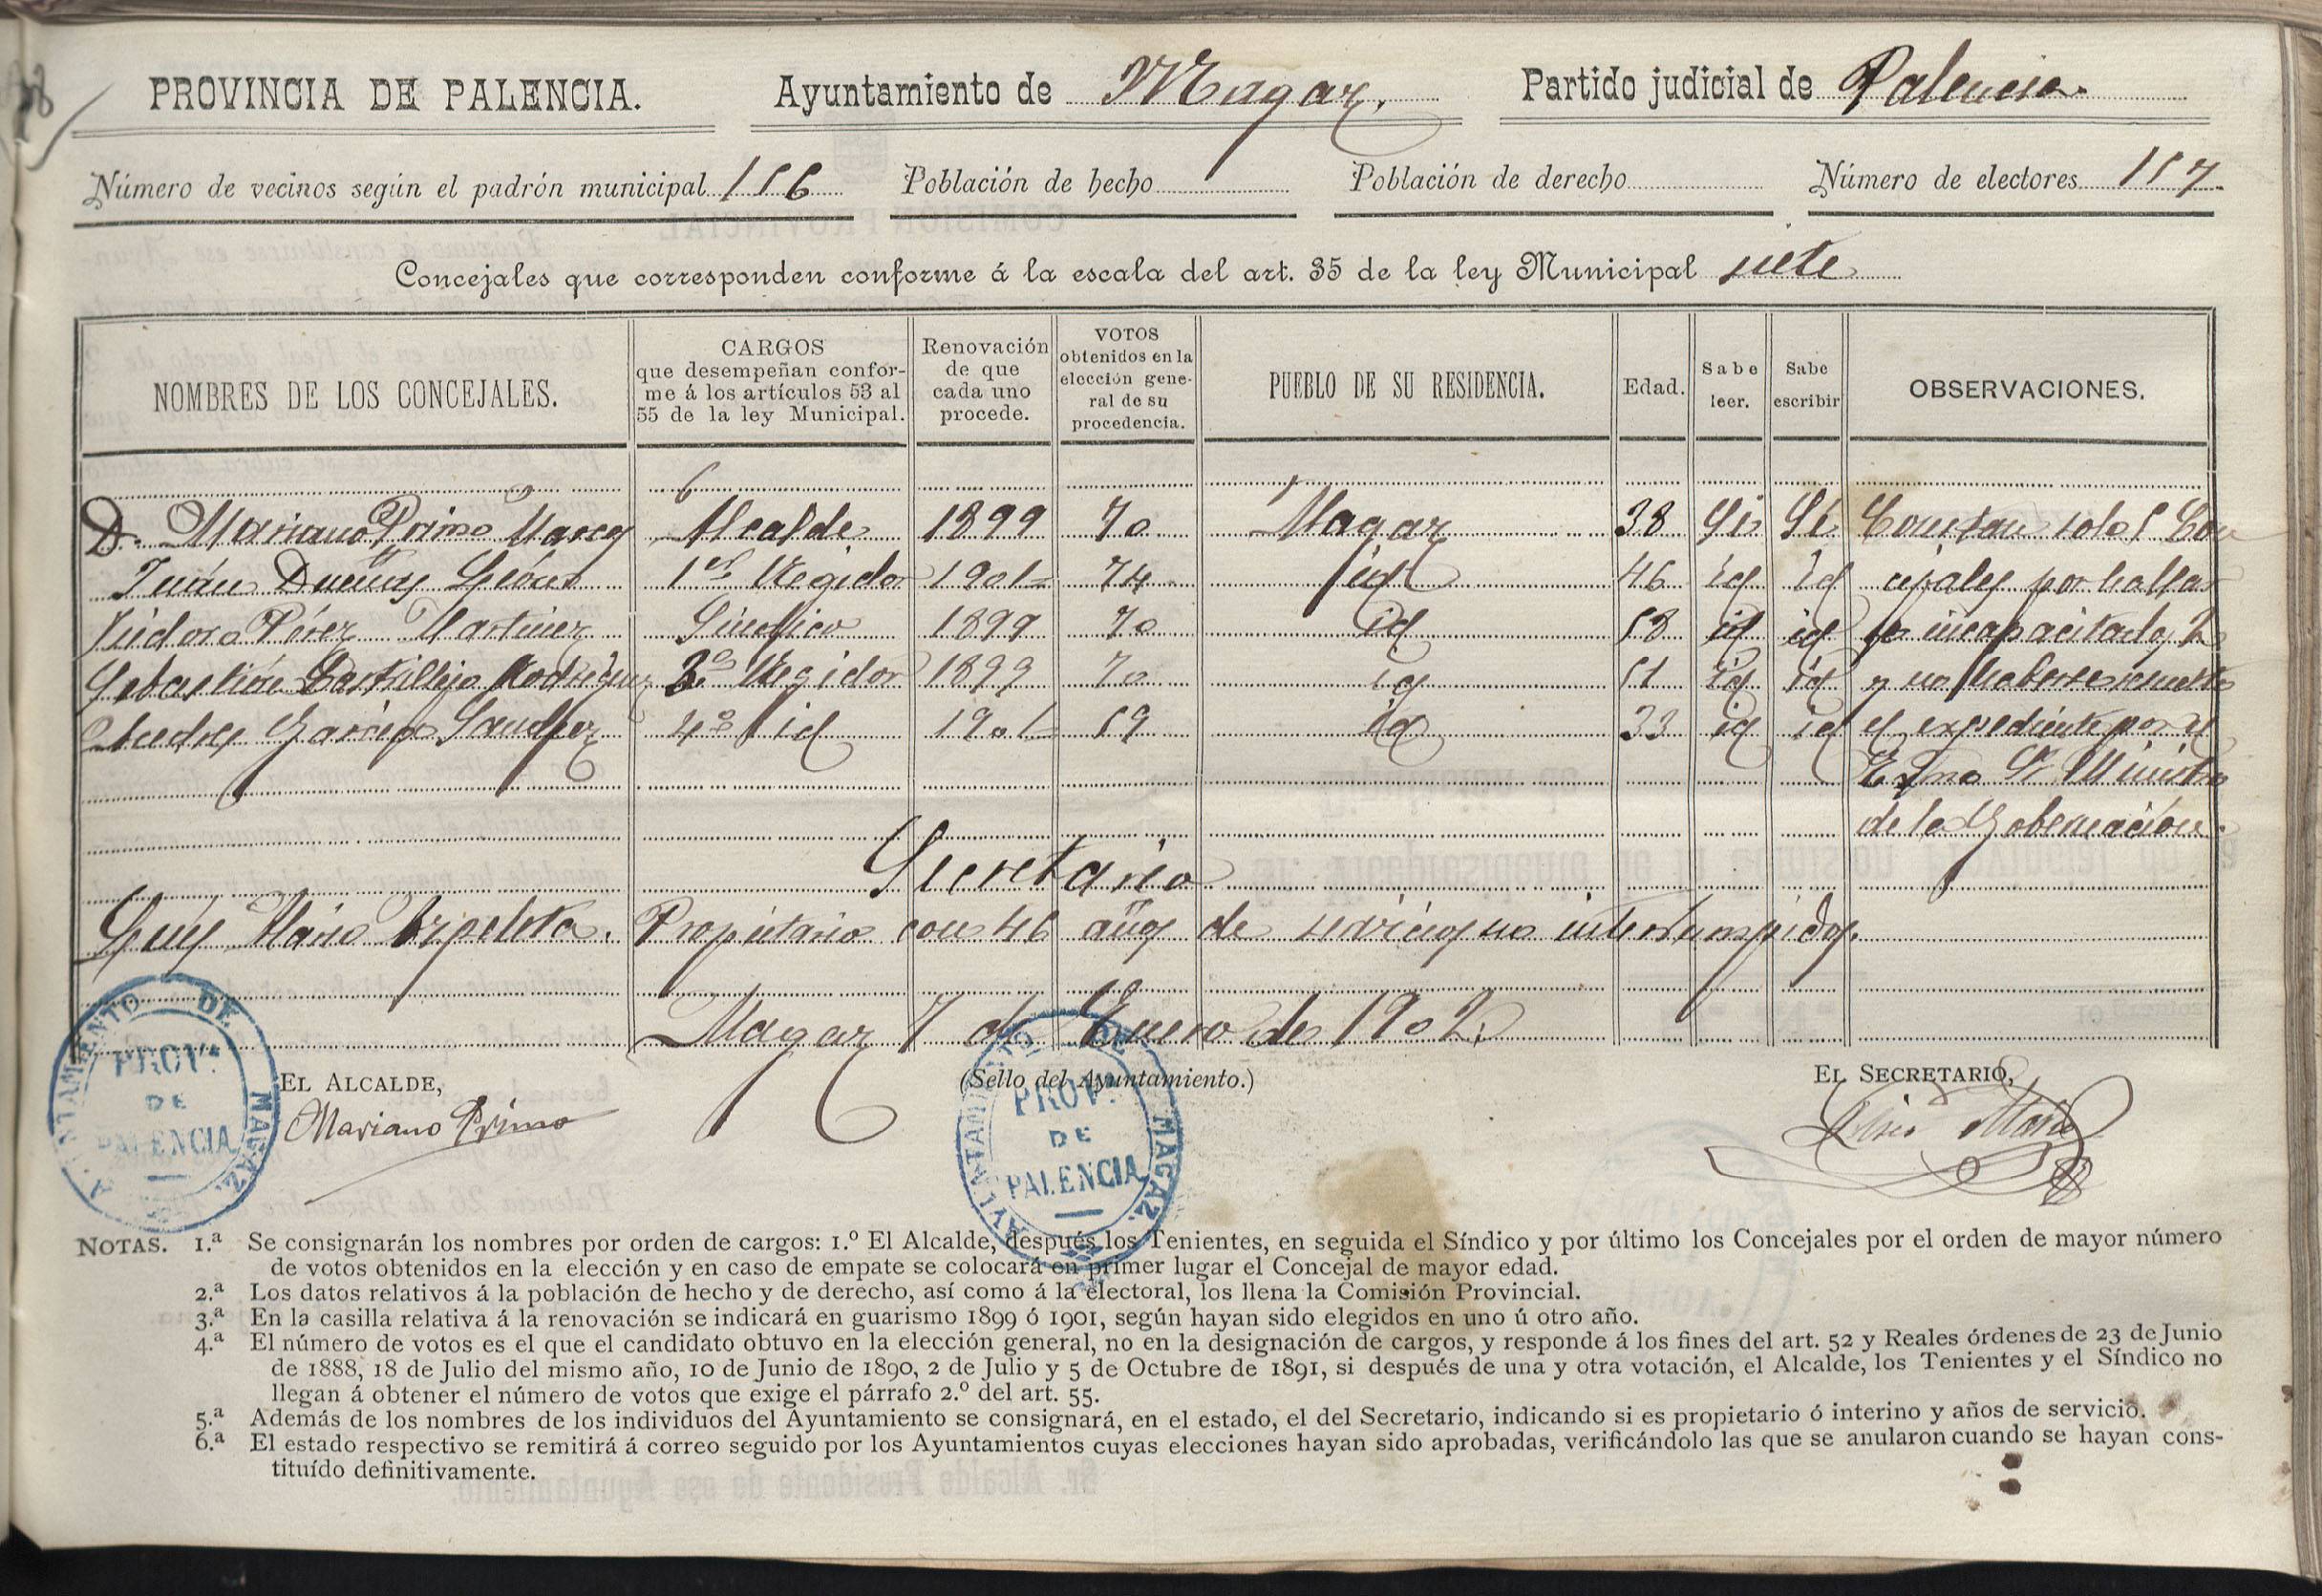 PROVINCIA DE PALENCIA. Ayuntamiento de Magaz. Partido judicial de Palencia.
Número de vecinos según el padrón municipal 156 Población de hecho Población de derecho Número de electores 157.
Concejales que corresponden conforme á la escala del art. 35 de la ley Municipal siete
NOMBRES DE LOS CONCEJALES.
CARGOS
que desempeñan confor-
me á los artículos 53 al
55 de la ley Municipal.
Renovación
de que
cada uno
procede.
VOTOS
obtenidos en la
elección gene-
ral de su
procedencia.
PUEBLO DE SU RESIDENCIA.
Edad.
Sabe
leer.
Sabe
escribir
OBSERVACIONES.
D. Mariano Primo Alcalde 1899 70 Magaz 38 Si Si Constan solo 5 Con
Juán Dueñas 1er Regidor 1901 74 id 46 id id cejales por hallar
Isidoro Pérez Martinez Sindico 1899 70 id 58 id id se incapacitados 2
Sebastián Castillejo Rodriguez 3º Regidor 1899 70 id 51 id id y no haberse resuelto
Andres Garcia Sanchez 4º id 1901 59 id 33 id id el expediente por el
Exmo Sr Ministro
de la Gobernación.
Secretario
Propietario con 46 años de servicios no interrumpidos.
Magaz 7 de Enero de 1902.
EL ALCALDE, (Sello del Ayuntamiento.) EL SECRETARIO,
Mariano Primo
AYUNTAMIENTO DE MAGAZ.
PROV.ª
DE
PALENCIA
AYUNTAMIENTO DE MAGAZ.
PROV.ª
DE
PALENCIA
NOTAS. 1.ª Se consignarán los nombres por orden de cargos: 1.º El Alcalde, después los Tenientes, en seguida el Síndico y por último los Concejales por el orden de mayor número
de votos obtenidos en la elección y en caso de empate se colocará en primer lugar el Concejal de mayor edad.
2.ª Los datos relativos á la población de hecho y de derecho, así como á la electoral, los llena la Comisión Provincial.
3.ª En la casilla relativa á la renovación se indicará en guarismo 1899 ó 1901, según hayan sido elegidos en uno ú otro año.
4.ª El número de votos es el que el candidato obtuvo en la elección general, no en la designación de cargos, y responde á los fines del art. 52 y Reales órdenes de 23 de Junio
de 1888, 18 de Julio del mismo año, 10 de Junio de 1890, 2 de Julio y 5 de Octubre de 1891, si después de una y otra votación, el Alcalde, los Tenientes y el Síndico no
llegan á obtener el número de votos que exige el párrafo 2.º del art. 55.
5.ª Además de los nombres de los individuos del Ayuntamiento se consignará, en el estado, el del Secretario, indicando si es propietario ó interino y años de servicio.
6.ª El estado respectivo se remitirá á correo seguido por los Ayuntamientos cuyas elecciones hayan sido aprobadas, verificándolo las que se anularon cuando se hayan cons-
tituído definitivamente.